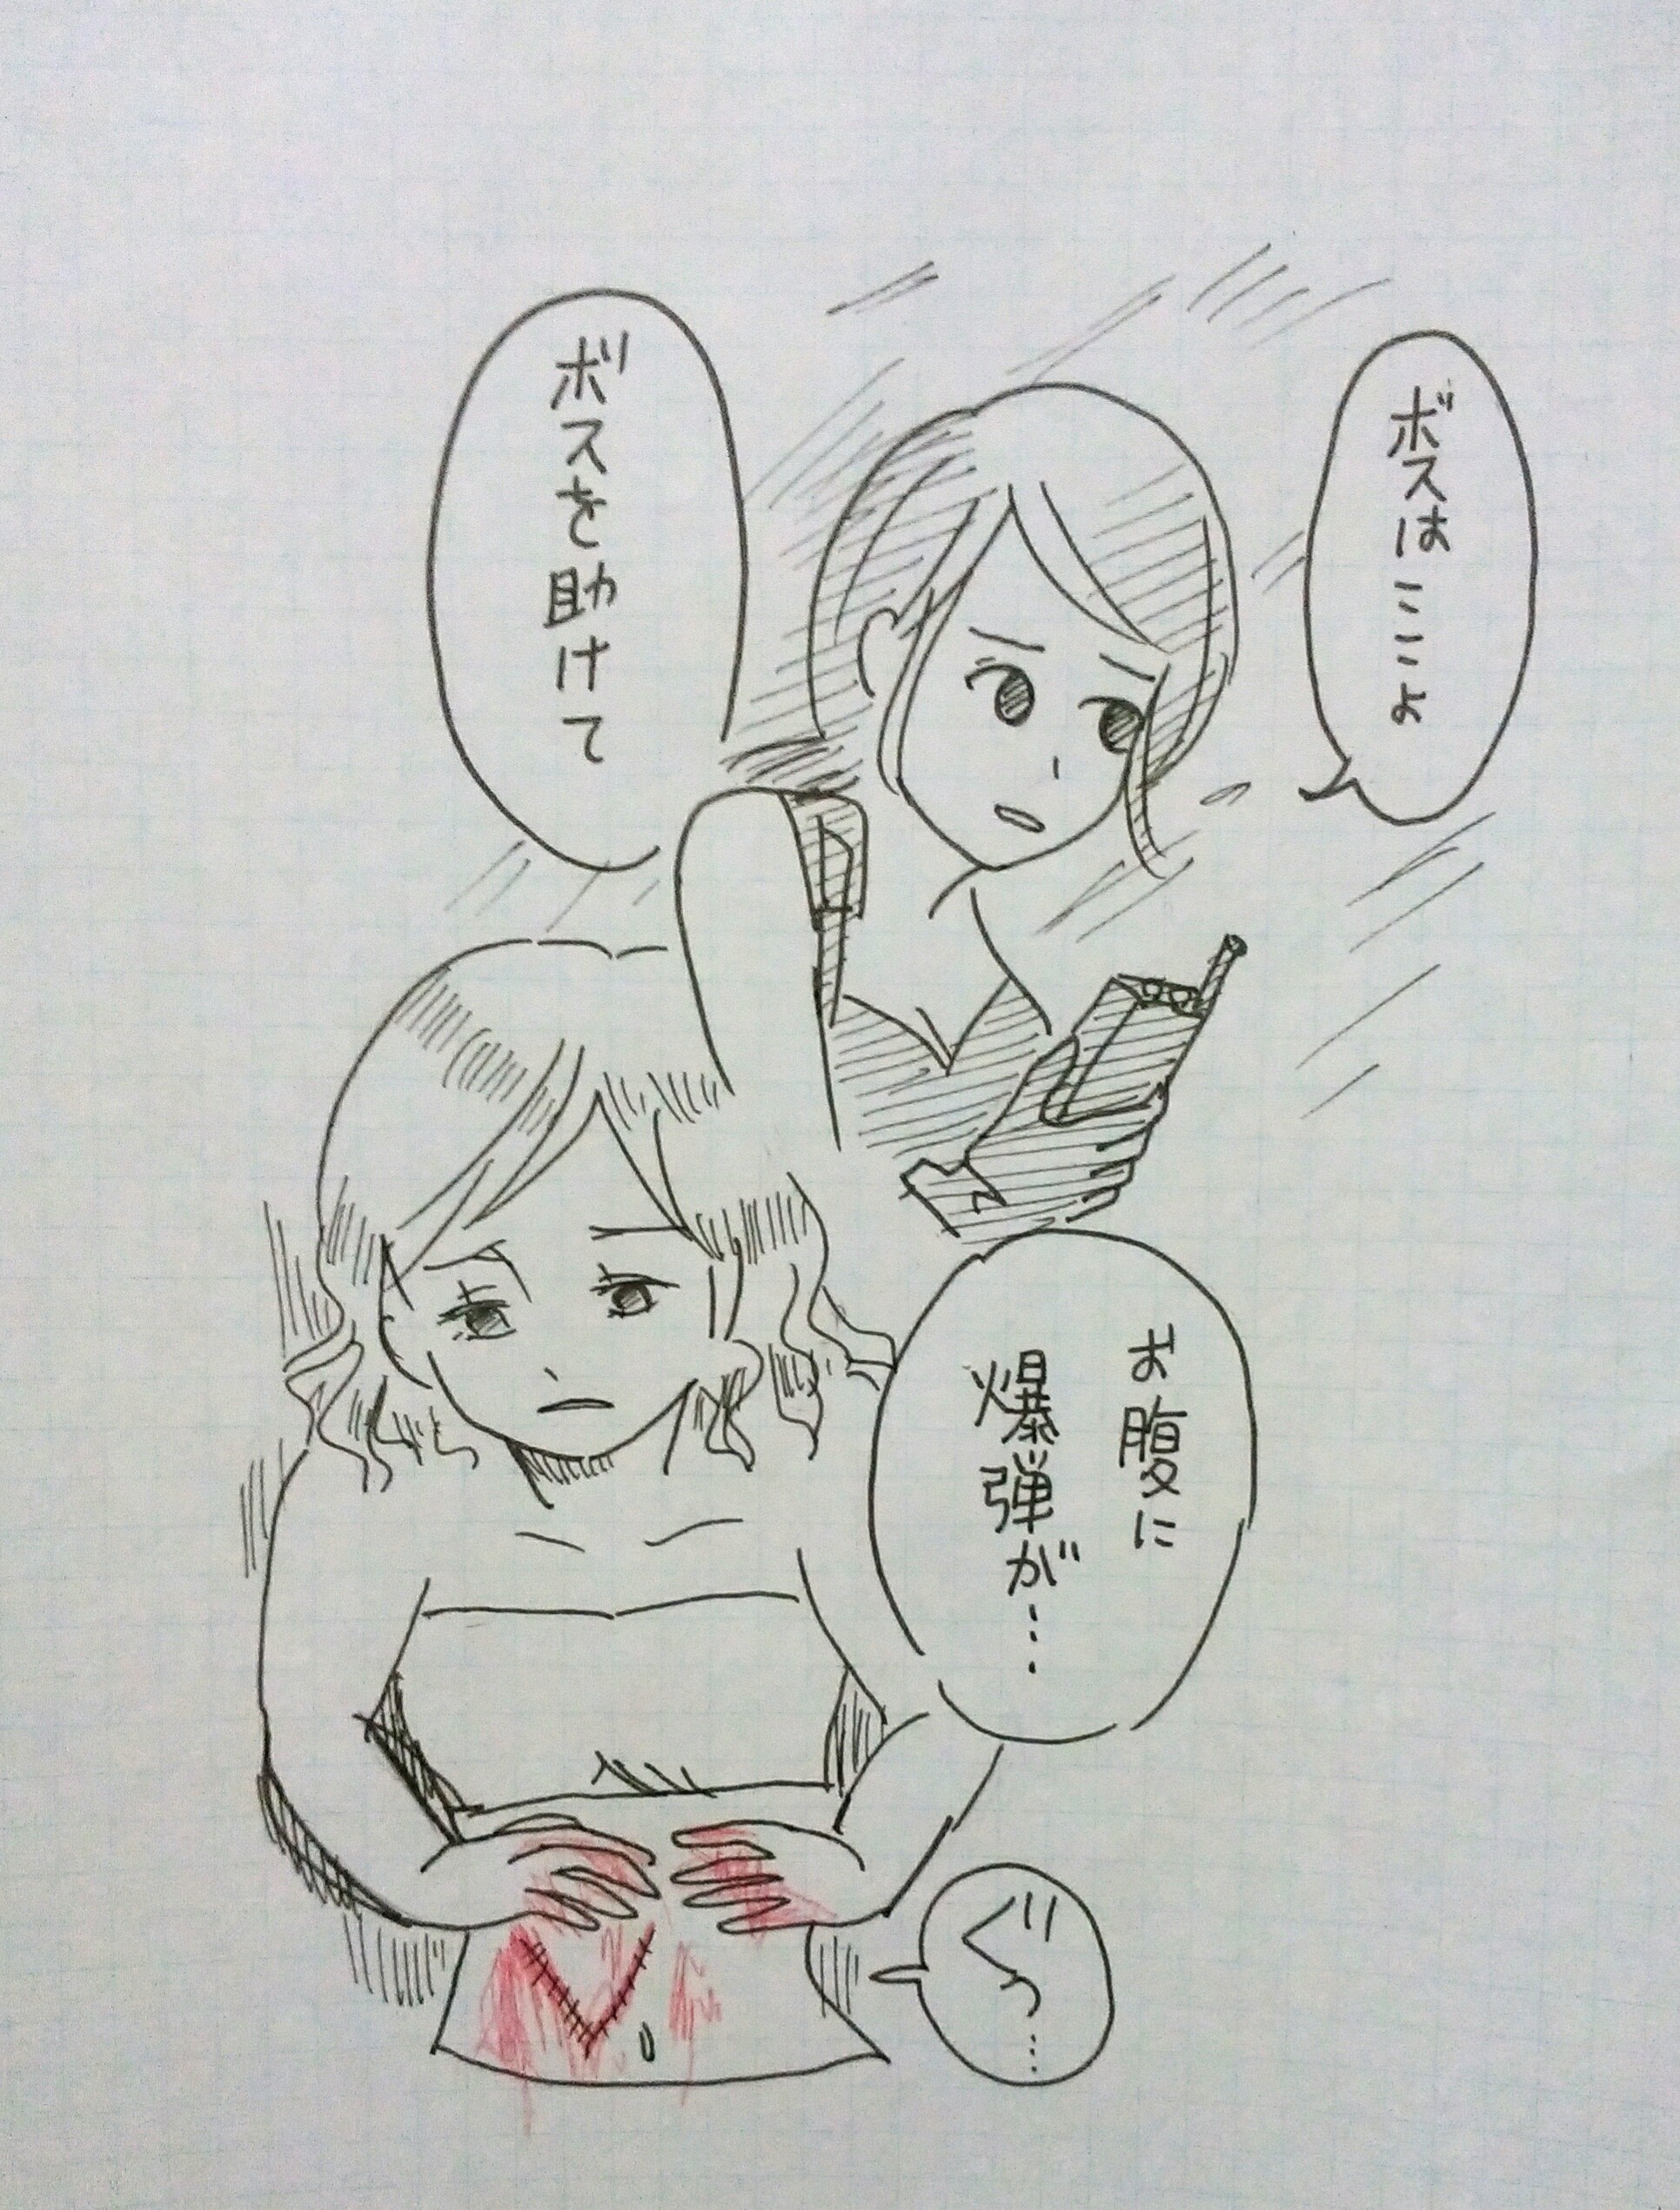 ボスはここよ
ボスを助けて
お腹に
爆弾が…
ぐっ…